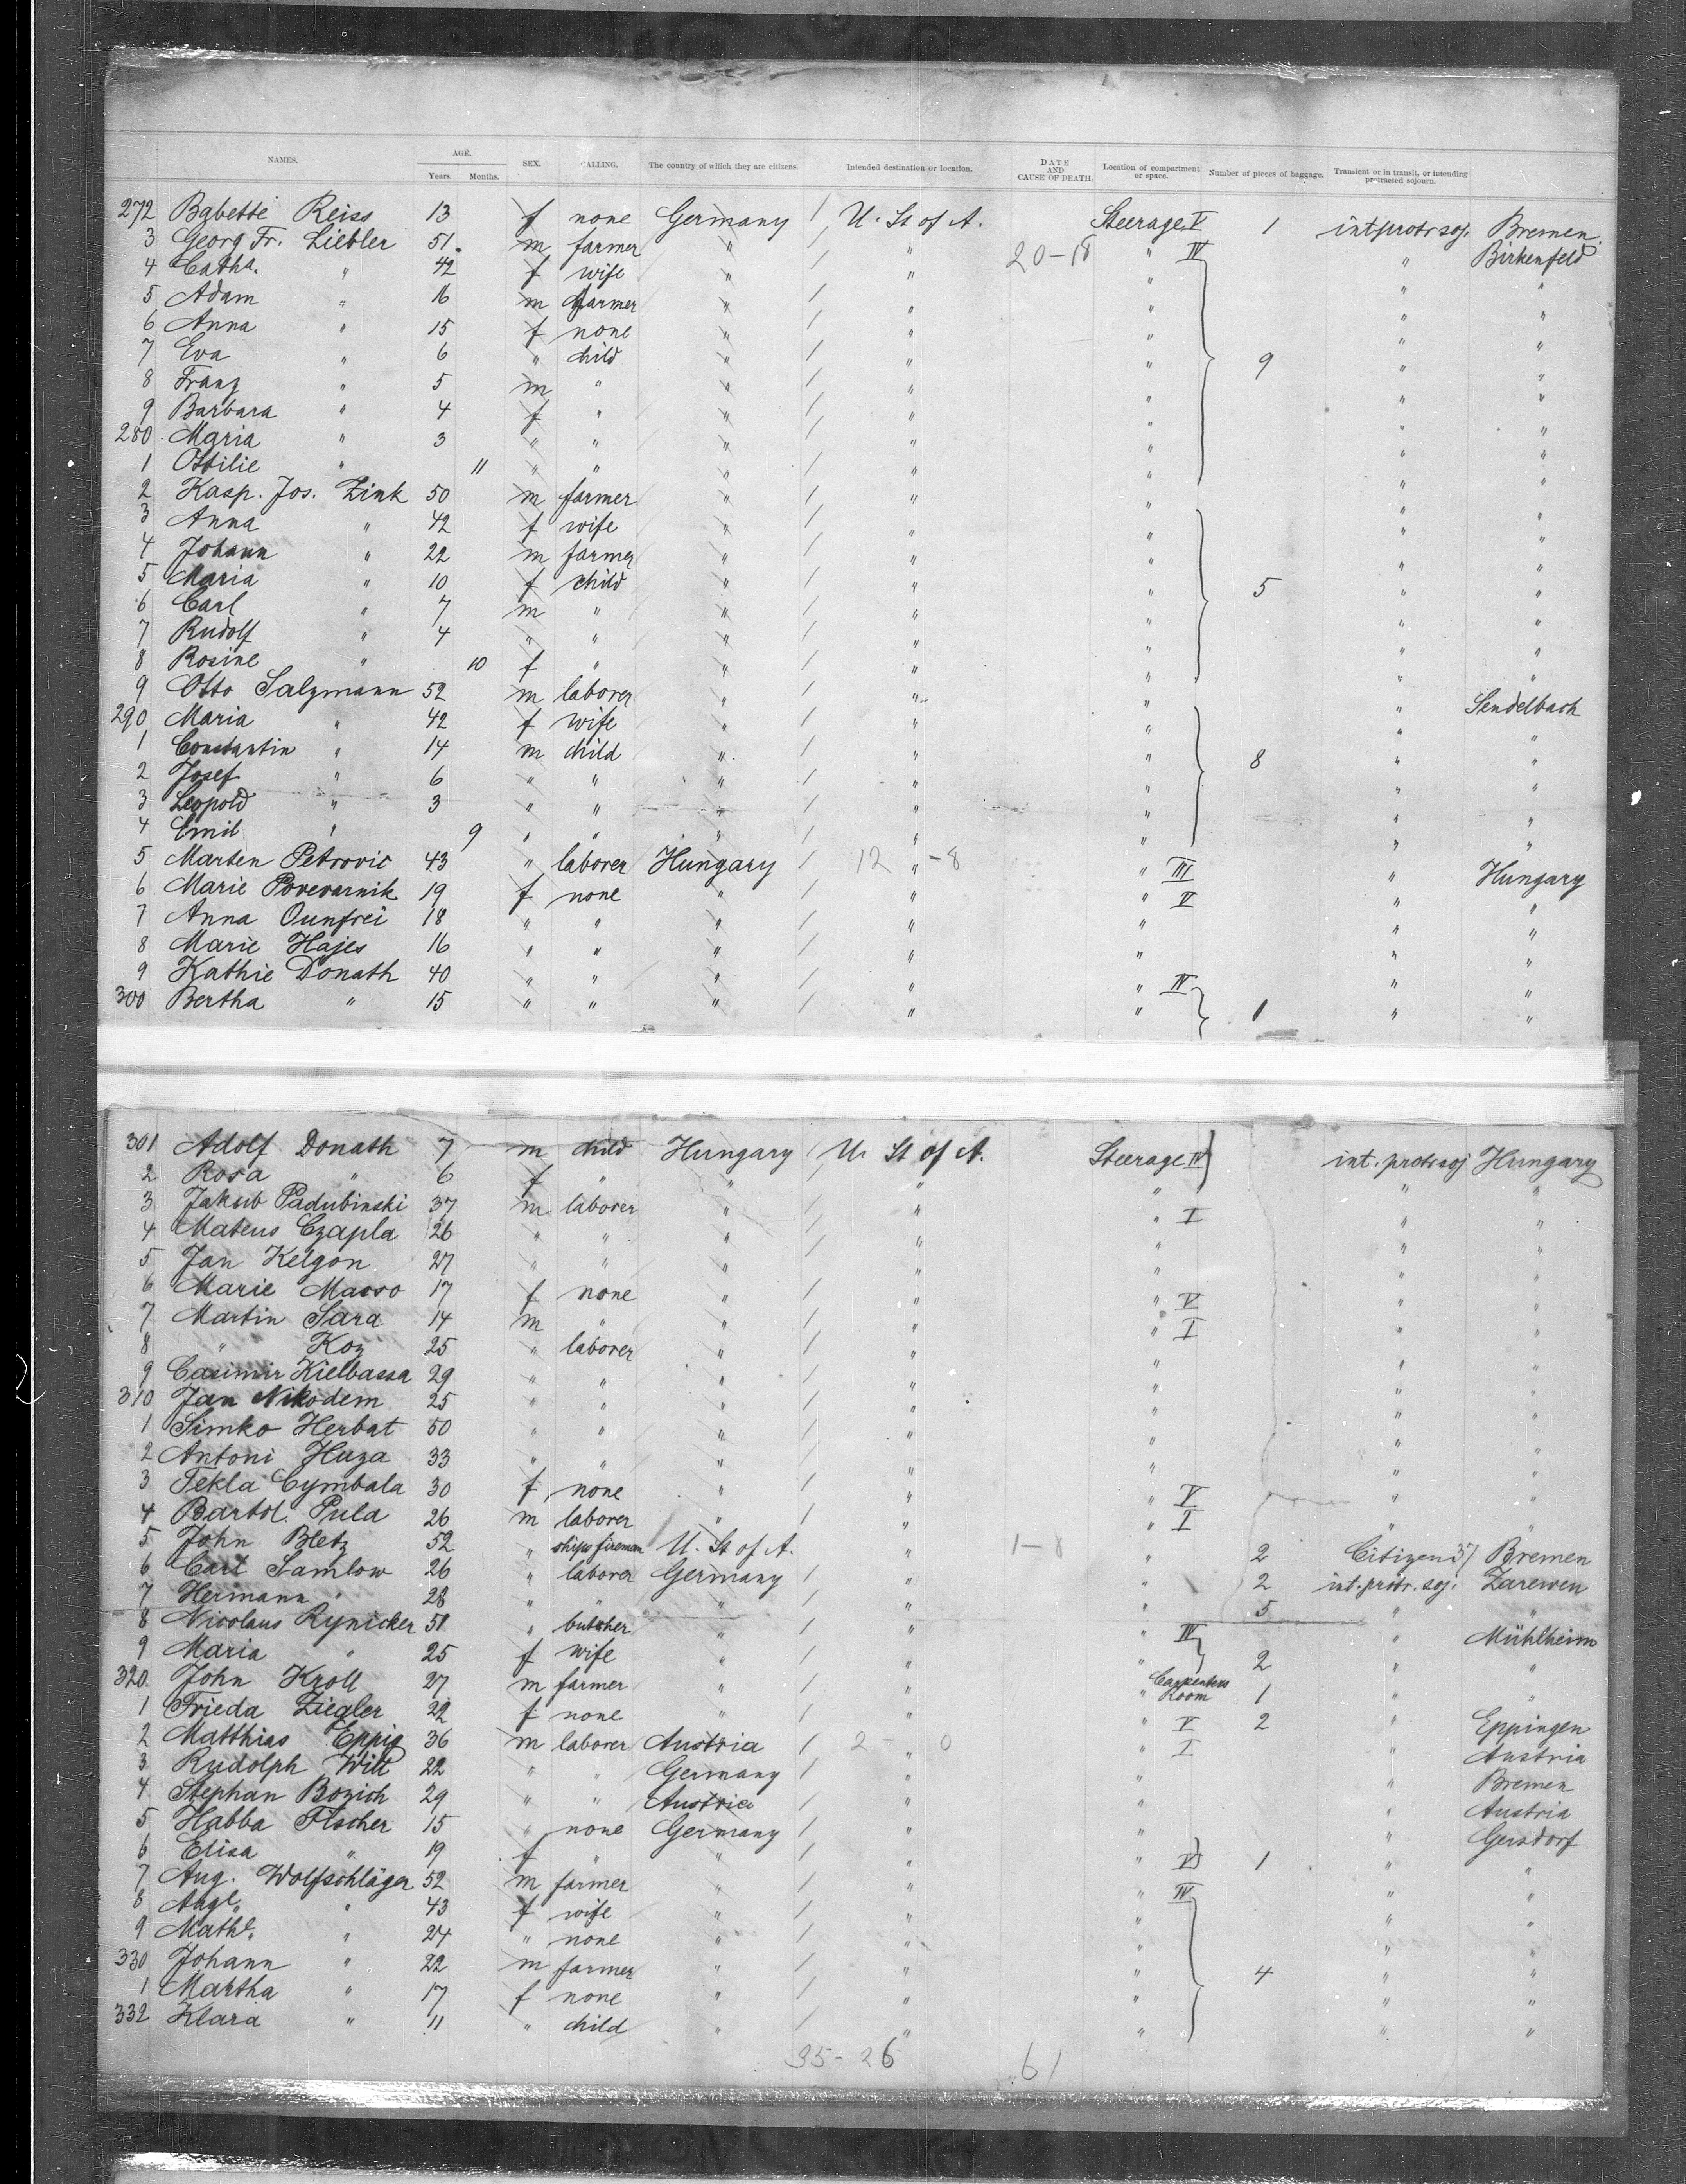 NAMES. AGE. SEX. CALLING. The country of which they are citizens. Intended destination or location. DATE AND CAUSE OF DEATH. Location of compartment or space. Number of pieces of baggage. Transient or in transit, or intending protracted sojourn.
Years. Months.
272 Babette Reiss 13 f none Germany / U. St of A. Steerage V 1 int protr soj. Bremen.
3 Georg Fr. Liebler 51. m farmer " / " 20-18 " IV " Birkenfeld
4 Catha. " 42 f wife " / " " " "
5 Adam " 16 m farmer " / " " " "
6 Anna " 15 f none " / " " " "
7 Eva " 6 " child " / " " 9 " "
8 Franz " 5 m " " / " " " "
9 Barbara " 4 f " " / " " " "
280 Maria " 3 " " " / " " " "
1 Ottilie " 11 " " " / " " " "
2 Kasp. Jos. Zink 50 m farmer " / " " " "
3 Anna " 42 f wife " / " " " "
4 Johann " 22 m farmer " / " " " "
5 Maria " 10 f child " / " " 5 " "
6 Carl " 7 m " " / " " " "
7 Rudolf " 4 " " " / " " " "
8 Rosine " 10 f " " / " " " "
9 Otto Salzmann 52 m laborer " / " " " Sendelbach
290 Maria " 42 f wife " / " " " "
1 Constantin " 14 m child " / " " 8 " "
2 Josef " 6 " " " / " " " "
3 Leopold " 3 " " " / " " " "
4 Emil " 9 " " " / " " " "
5 Marten Petrovic 43 " laborer Hungary / 12 " -8 " III " Hungary
6 Marie Poverarnik 19 f none " / " " V " "
7 Anna Ounfrei 18 " " " / " " " "
8 Marie Hajes 16 " " " / " " " "
9 Kathie Donath 40 " " " / " " IV " "
300 Bertha " 15 " " " / " " 1 " "
301 Adolf Donath 7 m child Hungary / U. St of A. Steerage IV int. protr soj Hungary
2 Rosa " 6 f " " / " " " "
3 Jakub Padubinski 37 m laborer " / " " I " "
4 Mateus Czapla 26 " " " / " " " "
5 Jan Kelgon 27 " " " / " " " "
6 Marie Masso 17 f none " / " " V " "
7 Martin Sara 14 m " " / " " I " "
8 " Koz 25 " laborer " / " " " "
9 Casimir Kielbassa 29 " " " / " " " "
310 Jan Nikodem 25 " " " / " " " "
1 Simko Herbat 50 " " " / " " " "
2 Antoni Huza 33 " " " / " " " "
3 Tekla Cymbala 30 f none " / " " V " "
4 Bartol. Pula 26 m laborer " / " " I " "
5 John Bletz 52 " ships fireman U. St of A. " 1-8 " 2 Citizen 57 Bremen
6 Carl Samlow 26 " laborer Germany / " " 2 int. protr. soj. Zarewen
7 Hermann " 28 " " " / " " 5 " "
8 Nicolaus Rynicker 51 " butcher " / " " IV " Mühlheim
9 Maria " 25 f wife " / " " 2 " "
320. John Kroll 27 m farmer " / " " Carpenters Room 1 " "
1 Frieda Ziegler 22 f none " / " " V 2 " Eppingen
2 Matthias Eppig 36 m laborer Austria / 2 - " 0 " I Austria
3 Rudolph Witt 22 " " Germany / " " " Bremen
4 Stephan Bozich 29 " " Austria / " " " Austria
5 Habba Fischer 15 " none Germany / " " " Gersdorf
6 Elisa " 19 f " " / " " V 1 " "
7 Aug. Wolfschläger 52 m farmer " / " " IV " "
8 Auge. " 43 f wife " / " " " "
9 Mathe. " 24 " none " / " " " "
330 Johann " 22 m farmer " / " " 4 " "
1 Martha " 17 f none " / " " " "
332 Klara " 11 " child " / " " " "
35-26 61